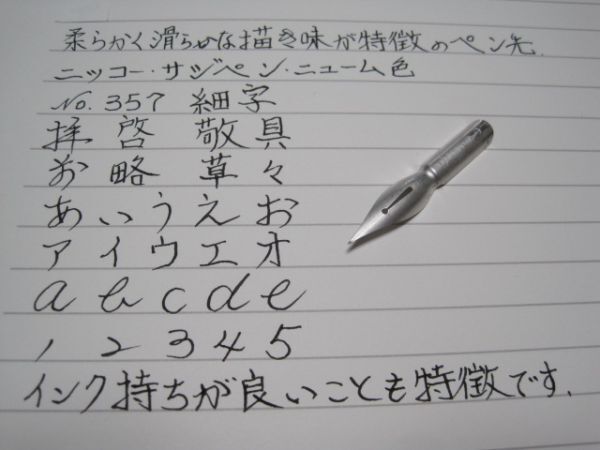 柔らかく滑らかな描き味が特徴のペン先
ニッコー・サジペン・ニューム色
No. 357 細字
拝啓 敬具
前略 草々
あいうえお
アイウエオ
a b c d e
1 2 3 4 5
インク持ちが良いことも特徴です.